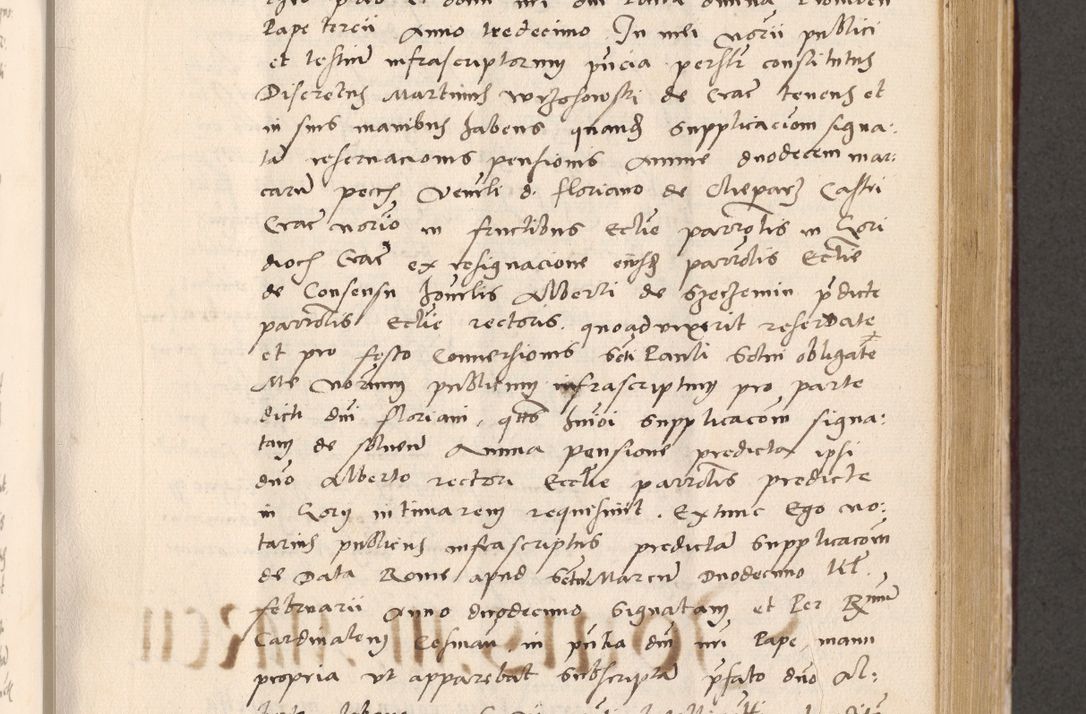 Pape tercii Anno tredecimo. In mei Norii publici
et testium infrascriptorum pncia perslr constitutus
Discretus Martinus de Crac tenens et
in suis manibus habens quandā supplicaciom signa:
tā reservacionis pensionis Annue duodecem mar:
carū pecch Venrli d. Floriano de Cleparz Castri
Crac norio in fructibus Eclie parrolis in Gori
dioch Crac ex resignacione eiusdē parrolis Eclie
de Consensu honrlis Alberti de pdicte
parrolis Eclie rectoris quoad vixerit reservate
et pro festo Conversionis scti Pauli solvi obligate
Me Norium publicum infrascriptum pro parte
dicti dni Floriani, qtus hmoi supplicacom signa:
tam de solven Annua pensione predicta ipsi
dno Alberto rectori Ecclie parrolis predicte
in Gory intimarem requisivit. Extunc Ego no:
tarius publicus infrascriptus predictā supplicacom
de Data Rome apud sctū Marcū Duodecimo kl.
februarii Anno duodecimo signatam et per Rmum
Cardinalem Cesinan in pntia dni nri Pape manu
propria ut apparebat subscriptā pfato dno Al: